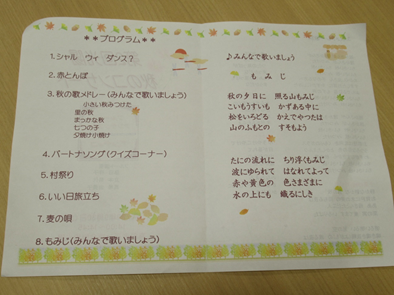 **プログラム**
1.シャル ウィ ダンス?
2.赤とんぼ
3.秋の歌メドレー(みんなで歌いましょう)
小さい秋みつけた
里の秋
まっかな秋
七つの子
夕焼け小焼け
4.パートナソング(クイズコーナー)
5.村祭り
6.いい日旅立ち
7.麦の唄
8.もみじ(みんなで歌いましょう)
♪みんなで歌いましょう
もみじ
秋の夕日に 照る山もみじ
こいもうすいも かずある中に
松をいろどる かえでやつたは
山のふもとの すそもよう
たにの流れに ちり浮くもみじ
波にゆられて はなれてよって
赤や黄色の 色さまざまに
水の上にも 織るにしき